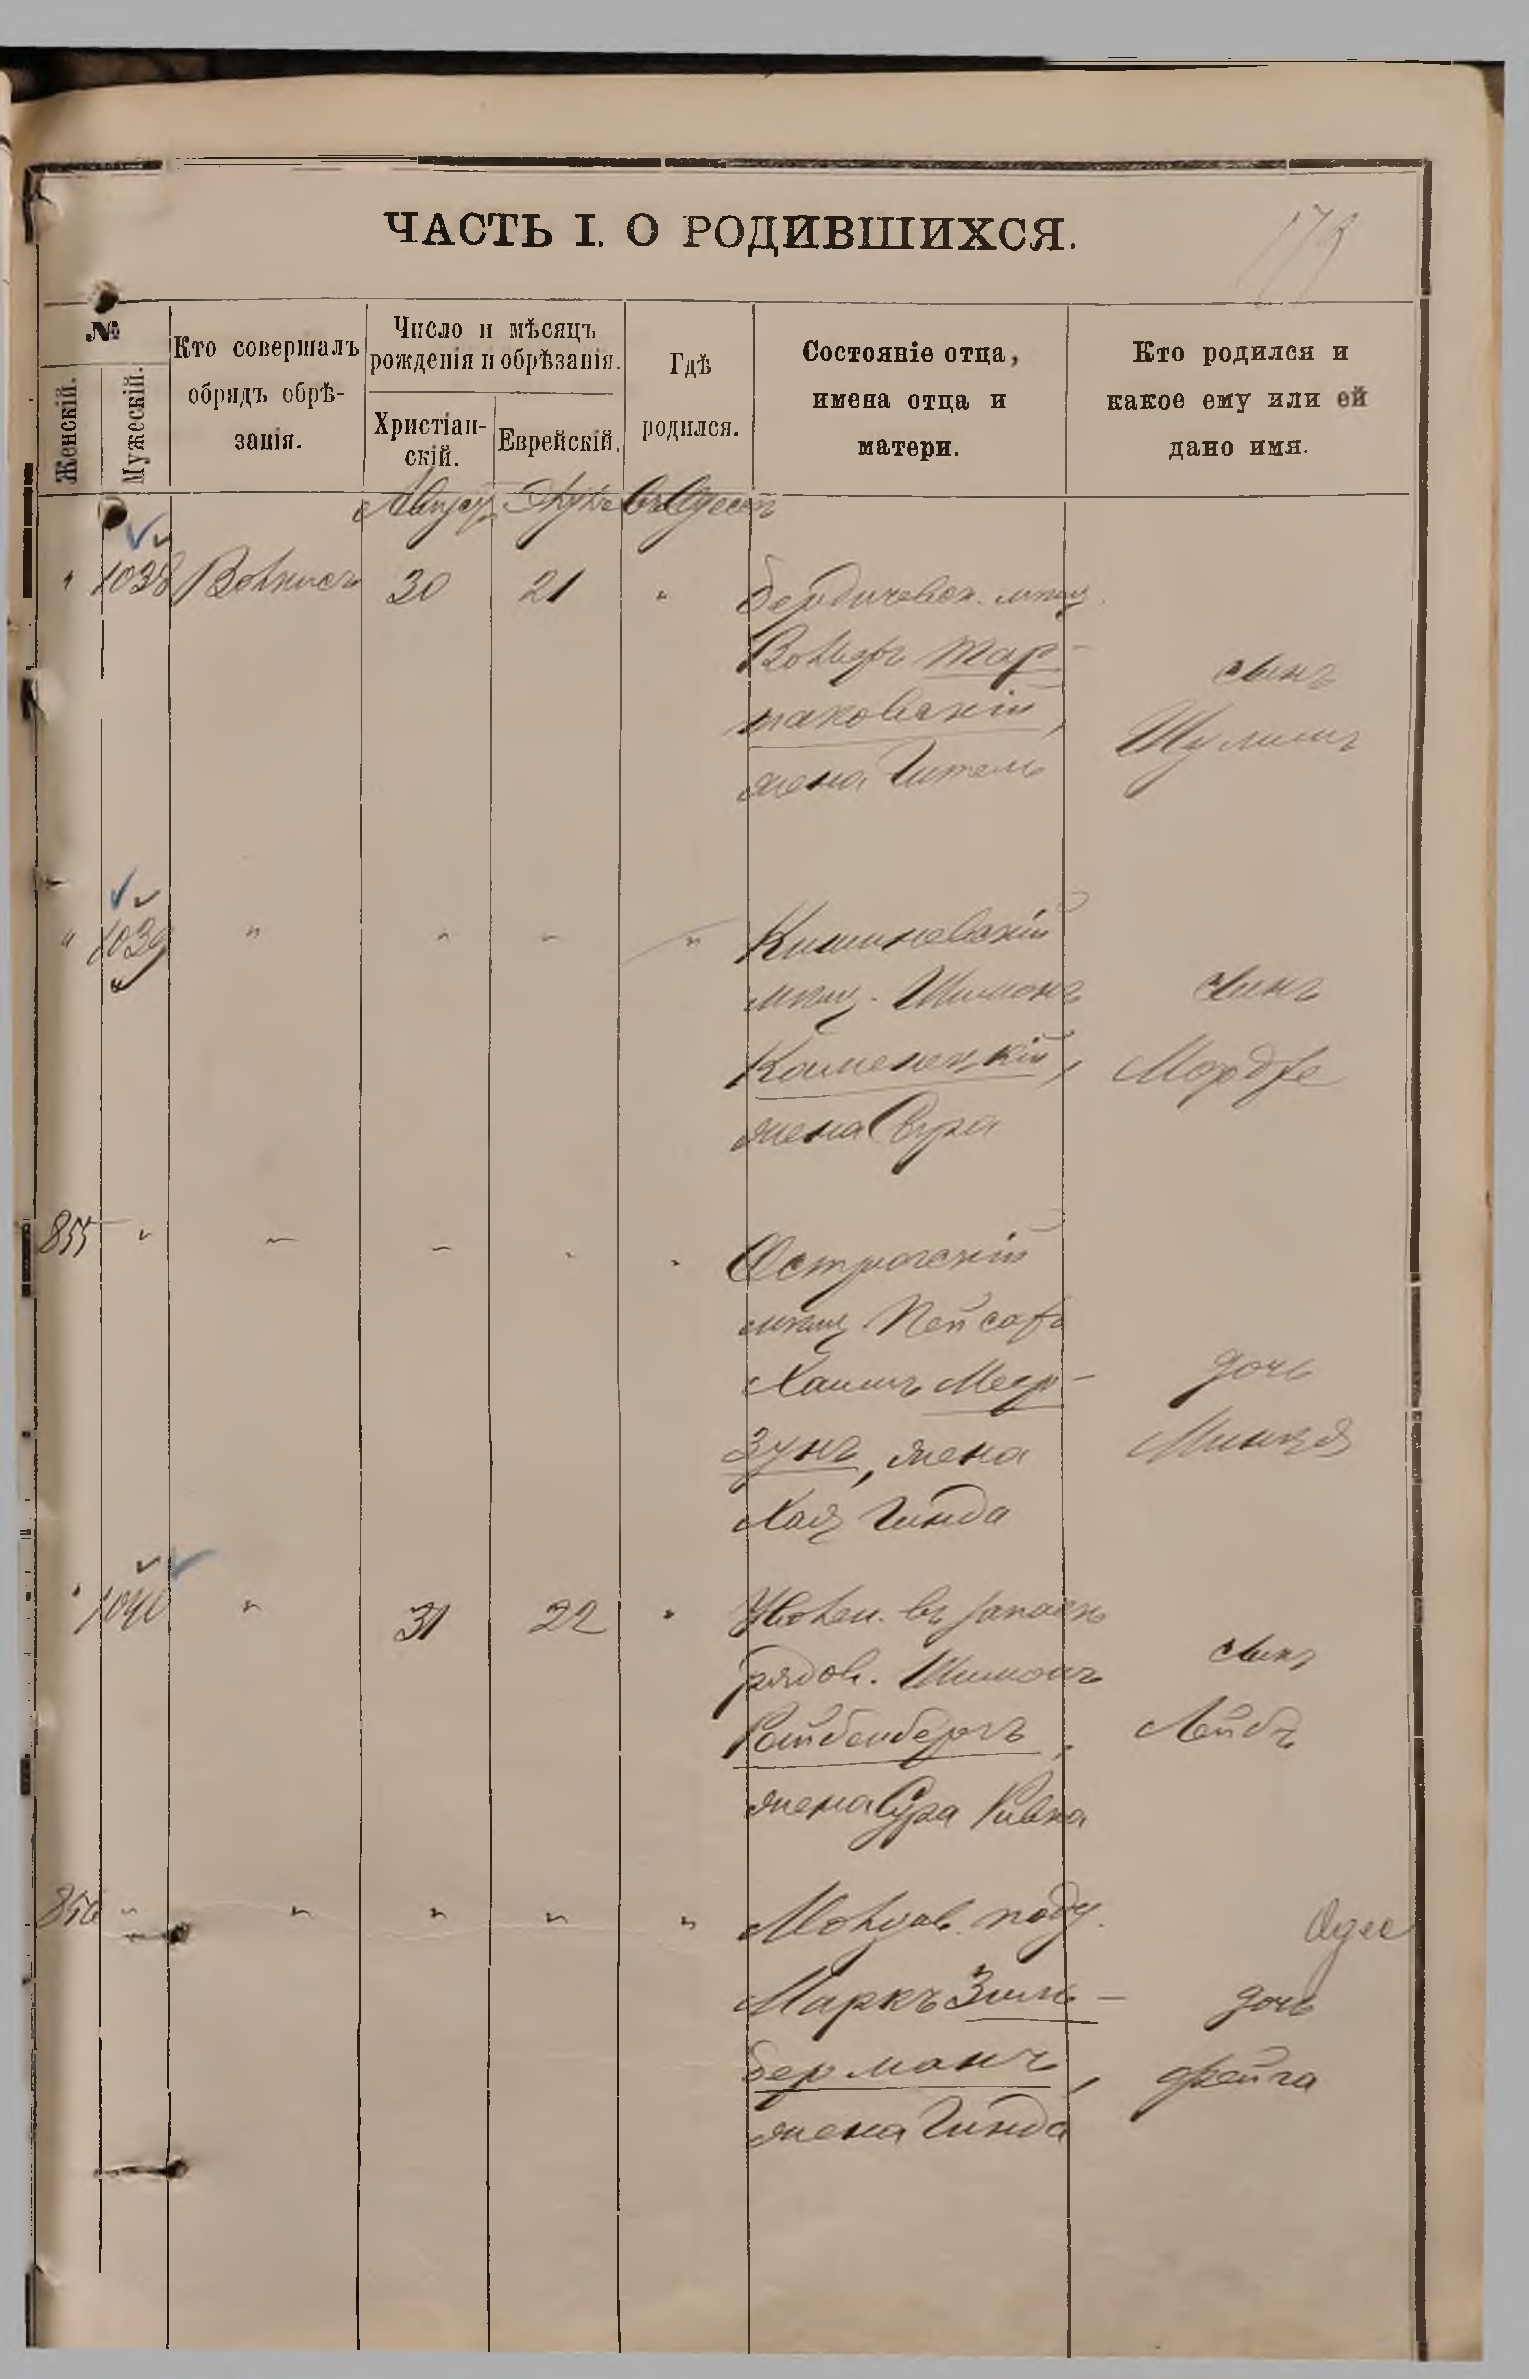 ЧАСТЬ I. О РОДИВШИХСЯ.
173
№
Женскій.
Мужескій.
Кто совершалъ
обрядъ обрѣ-
занія.
Число и мѣсяцъ
рожденія и обрѣзанія.
Христіан-
скій.
Еврейскій.
Гдѣ
родился.
Состояніе отца,
имена отца и
матери.
Кто родился и
какое ему или ей
дано имя.
Август Элулъ въ Одессѣ
" 1038 30 21 " Бердичевск. мѣщ.
Вольфъ Тар-
таковскій,
жена Гитель
сынъ
Шулимъ
" 1039 " " " " Кишиневскій
мѣщ. Шимонъ
Каменецкій,
жена Сура
сынъ
Мордхе
855 " " " " " Острогскій
мѣщ. Пейсахъ
Хаимъ Меер-
зунъ, жена
Хая Гинда
дочь
Минця
" 1040 " 31 22 " Уволен. въ запасъ
рядов. Шимонъ
Ройбенбергъ,
жена Сура Ривка
сынъ
Лейбъ
856 " " " " "
Маркъ Зиль-
берманъ,
жена Гинда
Одес
дочь
Фейга